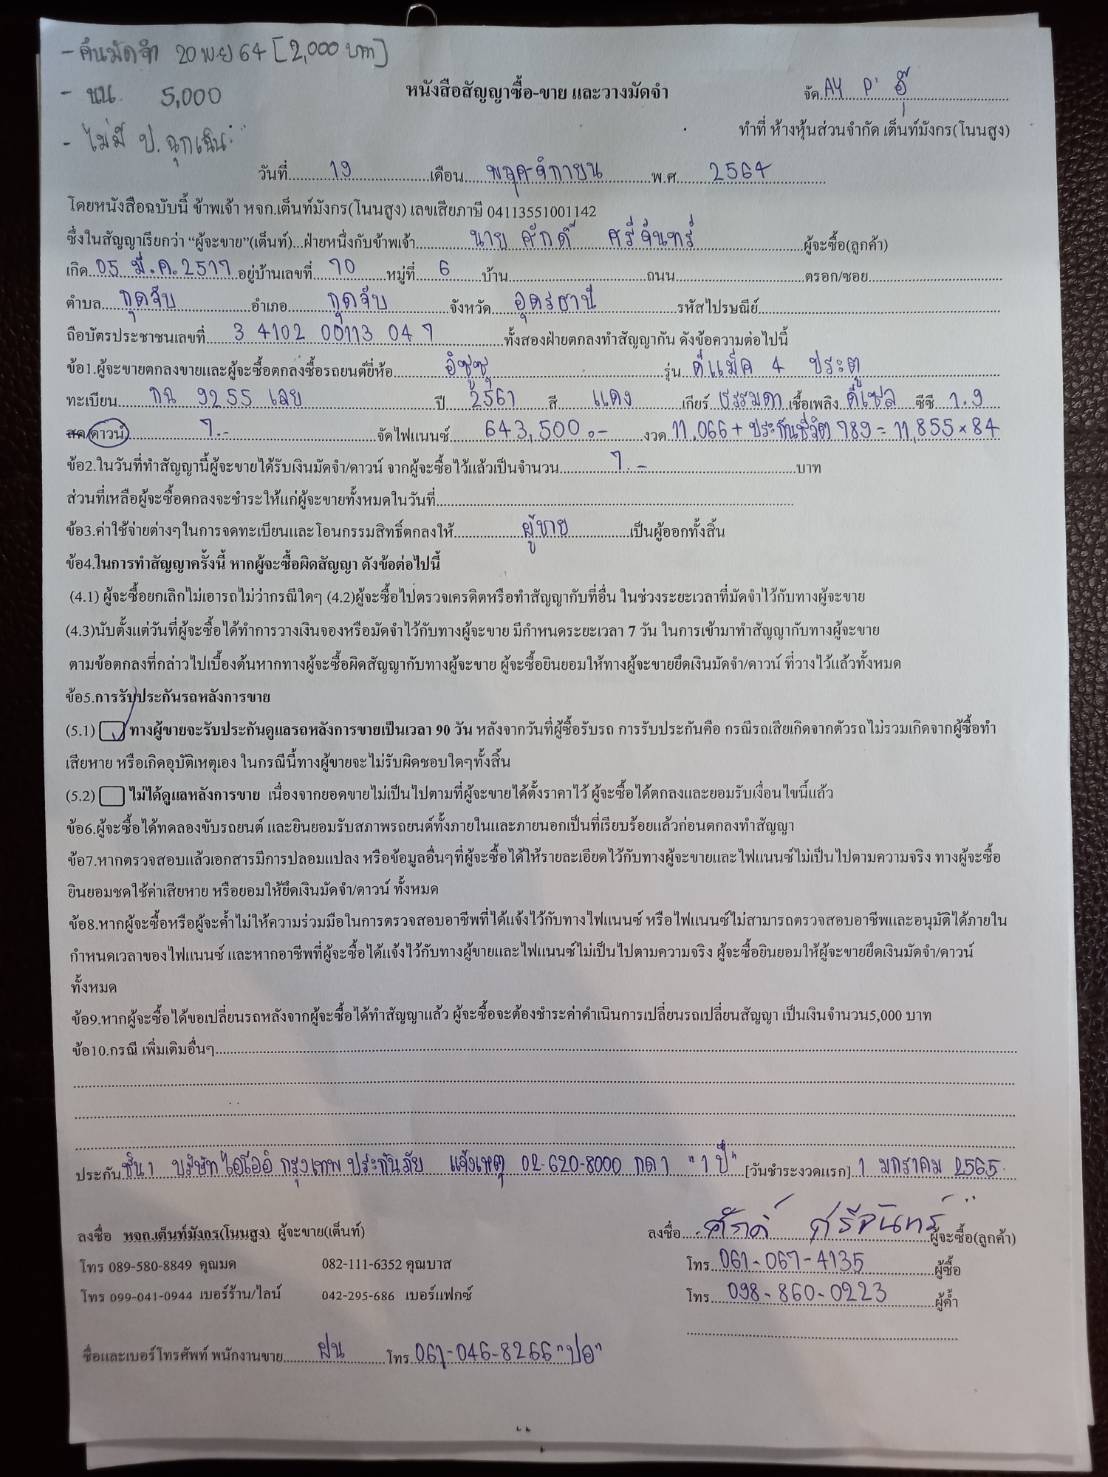 - คืนมัดจำ 20 พย 64 [2,000 บาท]
- นน. 5,000
หนังสือสัญญาซื้อ-ขาย และวางมัดจำ
จัด AY P' อุ๊
- ไม่มี ป. ฉุกเฉิน
ทำที่ ห้างหุ้นส่วนจำกัด เต็นท์มังกร(โนนสูง)
วันที่ 19 เดือน พฤศจิกายน พ.ศ. 2564
โดยหนังสือฉบับนี้ ข้าพเจ้า หจก.เต็นท์มังกร(โนนสูง) เลขเสียภาษี 04113551001142
ซึ่งในสัญญาเรียกว่า “ผู้จะขาย”(เต็นท์)...ฝ่ายหนึ่งกับข้าพเจ้า นาย ศักดิ์ ศรีจันทร์ ผู้จะซื้อ(ลูกค้า)
เกิด 05 มี.ค. 2517 อยู่บ้านเลขที่ 70 หมู่ที่ 6 บ้าน ถนน ตรอก/ซอย
ตำบล กุดจับ อำเภอ กุดจับ จังหวัด อุดรธานี รหัสไปรษณีย์
ถือบัตรประชาชนเลขที่ 3 4102 00113 04 7 ทั้งสองฝ่ายตกลงทำสัญญากัน ดังข้อความต่อไปนี้
ข้อ1.ผู้จะขายตกลงขายและผู้จะซื้อตกลงซื้อรถยนต์ยี่ห้อ อีซูซุ รุ่น ดีแม็ค 4 ประตู
ทะเบียน กฉ 9255 เลย ปี 2561 สี แดง เกียร์ ธรรมดา เชื้อเพลิง ดีเซล ซีซี 1.9
สด/ดาวน์ 7.- จัดไฟแนนซ์ 643,500.- งวด 11,066 + ประกันชีวิต 789 = 11,855 x 84
ข้อ2.ในวันที่ทำสัญญานี้ผู้จะขายได้รับเงินมัดจำ/ดาวน์ จากผู้จะซื้อไว้แล้วเป็นจำนวน 7.- บาท
ส่วนที่เหลือผู้จะซื้อตกลงจะชำระให้แก่ผู้จะขายทั้งหมดในวันที่
ข้อ3.ค่าใช้จ่ายต่างๆในการจดทะเบียนและโอนกรรมสิทธิ์ตกลงให้ ผู้ขาย เป็นผู้ออกทั้งสิ้น
ข้อ4.ในการทำสัญญาครั้งนี้ หากผู้จะซื้อผิดสัญญา ดังข้อต่อไปนี้
(4.1) ผู้จะซื้อยกเลิกไม่เอารถไม่ว่ากรณีใดๆ (4.2)ผู้จะซื้อไปตรวจเครดิตหรือทำสัญญากับที่อื่น ในช่วงระยะเวลาที่มัดจำไว้กับทางผู้จะขาย
(4.3)นับตั้งแต่วันที่ผู้จะซื้อได้ทำการวางเงินจองหรือมัดจำไว้กับทางผู้จะขาย มีกำหนดระยะเวลา 7 วัน ในการเข้ามาทำสัญญากับทางผู้จะขาย
ตามข้อตกลงที่กล่าวไปเบื้องต้นหากทางผู้จะซื้อผิดสัญญากับทางผู้จะขาย ผู้จะซื้อยินยอมให้ทางผู้จะขายยึดเงินมัดจำ/ดาวน์ ที่วางไว้แล้วทั้งหมด
ข้อ5.การรับประกันรถหลังการขาย
(5.1) ทางผู้ขายจะรับประกันดูแลรถหลังการขายเป็นเวลา 90 วัน หลังจากวันที่ผู้ซื้อรับรถ การรับประกันคือ กรณีรถเสียเกิดจากตัวรถไม่รวมเกิดจากผู้ซื้อทำ
เสียหาย หรือเกิดอุบัติเหตุเอง ในกรณีนี้ทางผู้ขายจะไม่รับผิดชอบใดๆทั้งสิ้น
(5.2) ไม่ได้ดูแลหลังการขาย เนื่องจากยอดขายไม่เป็นไปตามที่ผู้จะขายได้ตั้งราคาไว้ ผู้จะซื้อได้ตกลงและยอมรับเงื่อนไขนี้แล้ว
ข้อ6.ผู้จะซื้อได้ทดลองขับรถยนต์ และยินยอมรับสภาพรถยนต์ทั้งภายในและภายนอกเป็นที่เรียบร้อยแล้วก่อนตกลงทำสัญญา
ข้อ7.หากตรวจสอบแล้วเอกสารมีการปลอมแปลง หรือข้อมูลอื่นๆที่ผู้จะซื้อได้ให้รายละเอียดไว้กับทางผู้จะขายและไฟแนนซ์ไม่เป็นไปตามความจริง ทางผู้จะซื้อ
ยินยอมชดใช้ค่าเสียหาย หรือยอมให้ยึดเงินมัดจำ/ดาวน์ ทั้งหมด
ข้อ8.หากผู้จะซื้อหรือผู้จะค้ำไม่ให้ความร่วมมือในการตรวจสอบอาชีพที่ได้แจ้งไว้กับทางไฟแนนซ์ หรือไฟแนนซ์ไม่สามารถตรวจสอบอาชีพและอนุมัติได้ภายใน
กำหนดเวลาของไฟแนนซ์ และหากอาชีพที่ผู้จะซื้อได้แจ้งไว้กับทางผู้ขายและไฟแนนซ์ไม่เป็นไปตามความจริง ผู้จะซื้อยินยอมให้ผู้จะขายยึดเงินมัดจำ/ดาวน์
ทั้งหมด
ข้อ9.หากผู้จะซื้อได้ขอเปลี่ยนรถหลังจากผู้จะซื้อได้ทำสัญญาแล้ว ผู้จะซื้อจะต้องชำระค่าดำเนินการเปลี่ยนรถเปลี่ยนสัญญา เป็นเงินจำนวน5,000 บาท
ข้อ10.กรณี เพิ่มเติมอื่นๆ
ประกัน ชั้น 1 บริษัท ไอโออิ กรุงเทพ ประกันภัย แจ้งเหตุ 02-620-8000 กด 1 "1 ปี" [วันชำระงวดแรก] 1 มกราคม 2565
ลงชื่อ หจก.เต็นท์มังกร(โนนสูง) ผู้จะขาย(เต็นท์)
ลงชื่อ ศักดิ์ ศรีจันทร์ ผู้จะซื้อ(ลูกค้า)
โทร 089-580-8849 คุณมด 082-111-6352 คุณบาส โทร 061-067-4135 ผู้ซื้อ
โทร 099-041-0944 เบอร์ร้าน/ไลน์ 042-295-686 เบอร์แฟกซ์ โทร 098-860-0223 ผู้ค้ำ
ชื่อและเบอร์โทรศัพท์ พนักงานขาย ฝน โทร 061-046-8266 "ปอ"